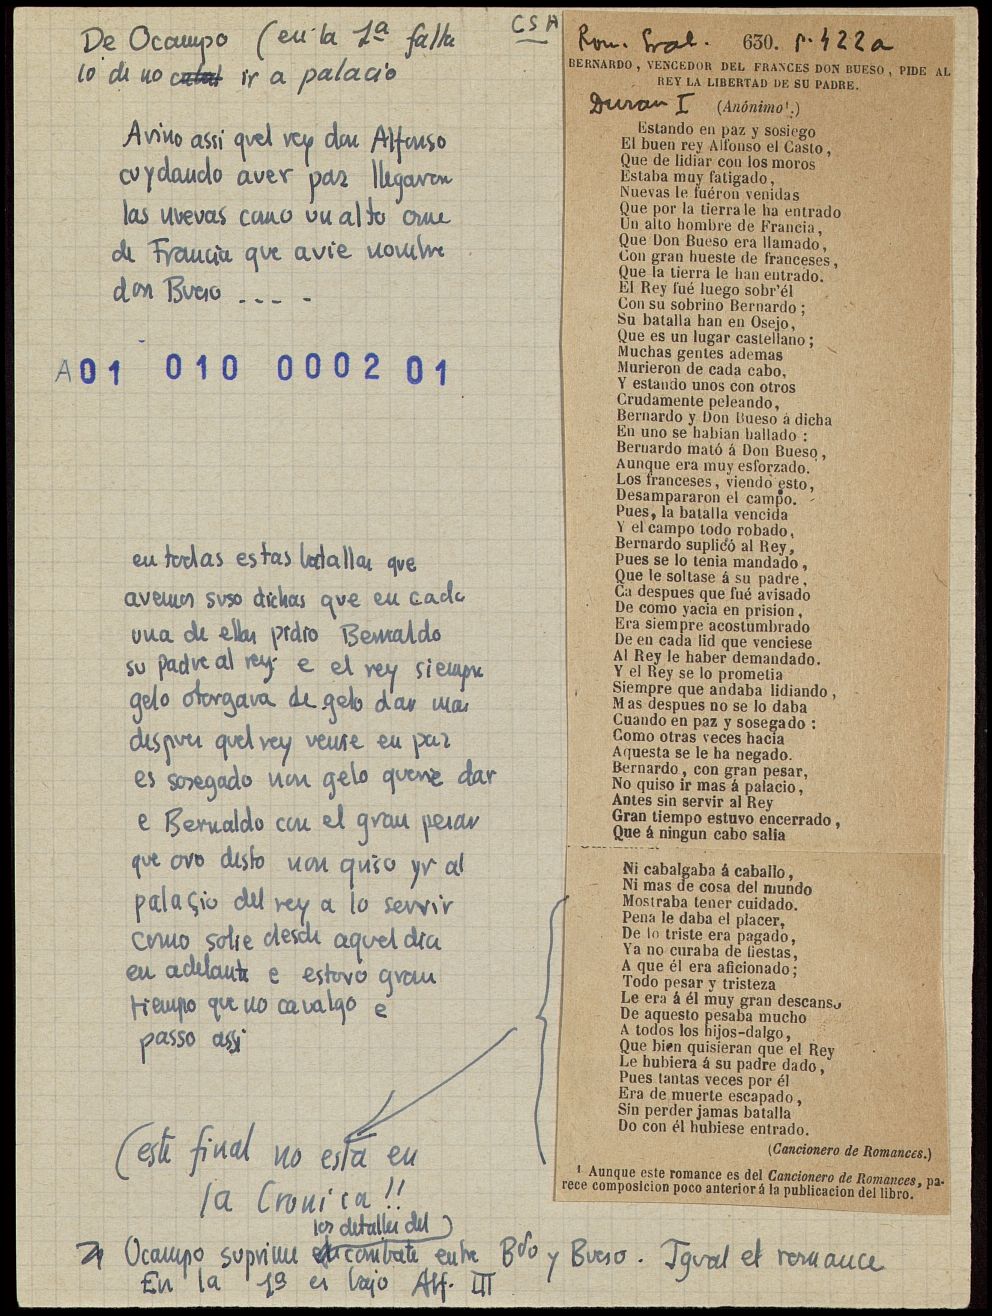 De Ocampo (en la 1ª falta
lo de no ir a palacio
CSA
Avino assi quel rey don Alfonso
cuydando aver paz llegaron
las nuevas como un alto ome
de Francia que avie nombre
don Bueso ....
A01 010 0002 01
en todas estas batallas que
avemos suso dichas que en cada
una de ellas pidio Bernaldo
su padre al rey e el rey siempre
gelo otorgava de gelo dar mas
despues quel rey venie en paz
es sosegado non gelo querie dar
e Bernaldo con el gran pesar
que ovo desto non quiso yr al
palaçio del rey a lo servir
como solie desde aquel dia
en adelante e estovo gran
tiempo que no cavalgo e
passo assi
(este final no está en
la Cronica!!
Ocampo suprime los detalles del combate entre Bdo y Bueso. Igual el romance
En la 1ª es bajo Alf. III
Rom. Gral. 630. p. 422a
BERNARDO, VENCEDOR DEL FRANCES DON BUESO, PIDE AL
REY LA LIBERTAD DE SU PADRE.
Duran I (Anónimo ¹.)
Estando en paz y sosiego
El buen rey Alfonso el Casto,
Que de lidiar con los moros
Estaba muy fatigado,
Nuevas le fuéron venidas
Que por la tierra le ha entrado
Un alto hombre de Francia,
Que Don Bueso era llamado,
Con gran hueste de franceses,
Que la tierra le han entrado.
El Rey fué luego sobr'él
Con su sobrino Bernardo;
Su batalla han en Osejo,
Que es un lugar castellano;
Muchas gentes ademas
Murieron de cada cabo,
Y estando unos con otros
Crudamente peleando,
Bernardo y Don Bueso á dicha
En uno se habian hallado:
Bernardo mató á Don Bueso,
Aunque era muy esforzado.
Los franceses, viendo esto,
Desampararon el campo.
Pues, la batalla vencida
Y el campo todo robado,
Bernardo suplicó al Rey,
Pues se lo tenia mandado,
Que le soltase á su padre,
Ca despues que fué avisado
De como yacia en prision,
Era siempre acostumbrado
De en cada lid que venciese
Al Rey le haber demandado.
Y el Rey se lo prometia
Siempre que andaba lidiando,
Mas despues no se lo daba
Cuando en paz y sosegado:
Como otras veces hacia
Aquesta se le ha negado.
Bernardo, con gran pesar,
No quiso ir mas á palacio,
Antes sin servir al Rey
Gran tiempo estuvo encerrado,
Que á ningun cabo salia
Ni cabalgaba á caballo,
Ni mas de cosa del mundo
Mostraba tener cuidado.
Pena le daba el placer,
De lo triste era pagado,
Ya no curaba de fiestas,
A que él era aficionado;
Todo pesar y tristeza
Le era á él muy gran descanso
De aquesto pesaba mucho
A todos los hijos-dalgo,
Que bien quisieran que el Rey
Le hubiera á su padre dado,
Pues tantas veces por él
Era de muerte escapado,
Sin perder jamas batalla
Do con él hubiese entrado.
(Cancionero de Romances.)
¹ Aunque este romance es del Cancionero de Romances, pa-
rece composicion poco anterior á la publicacion del libro.